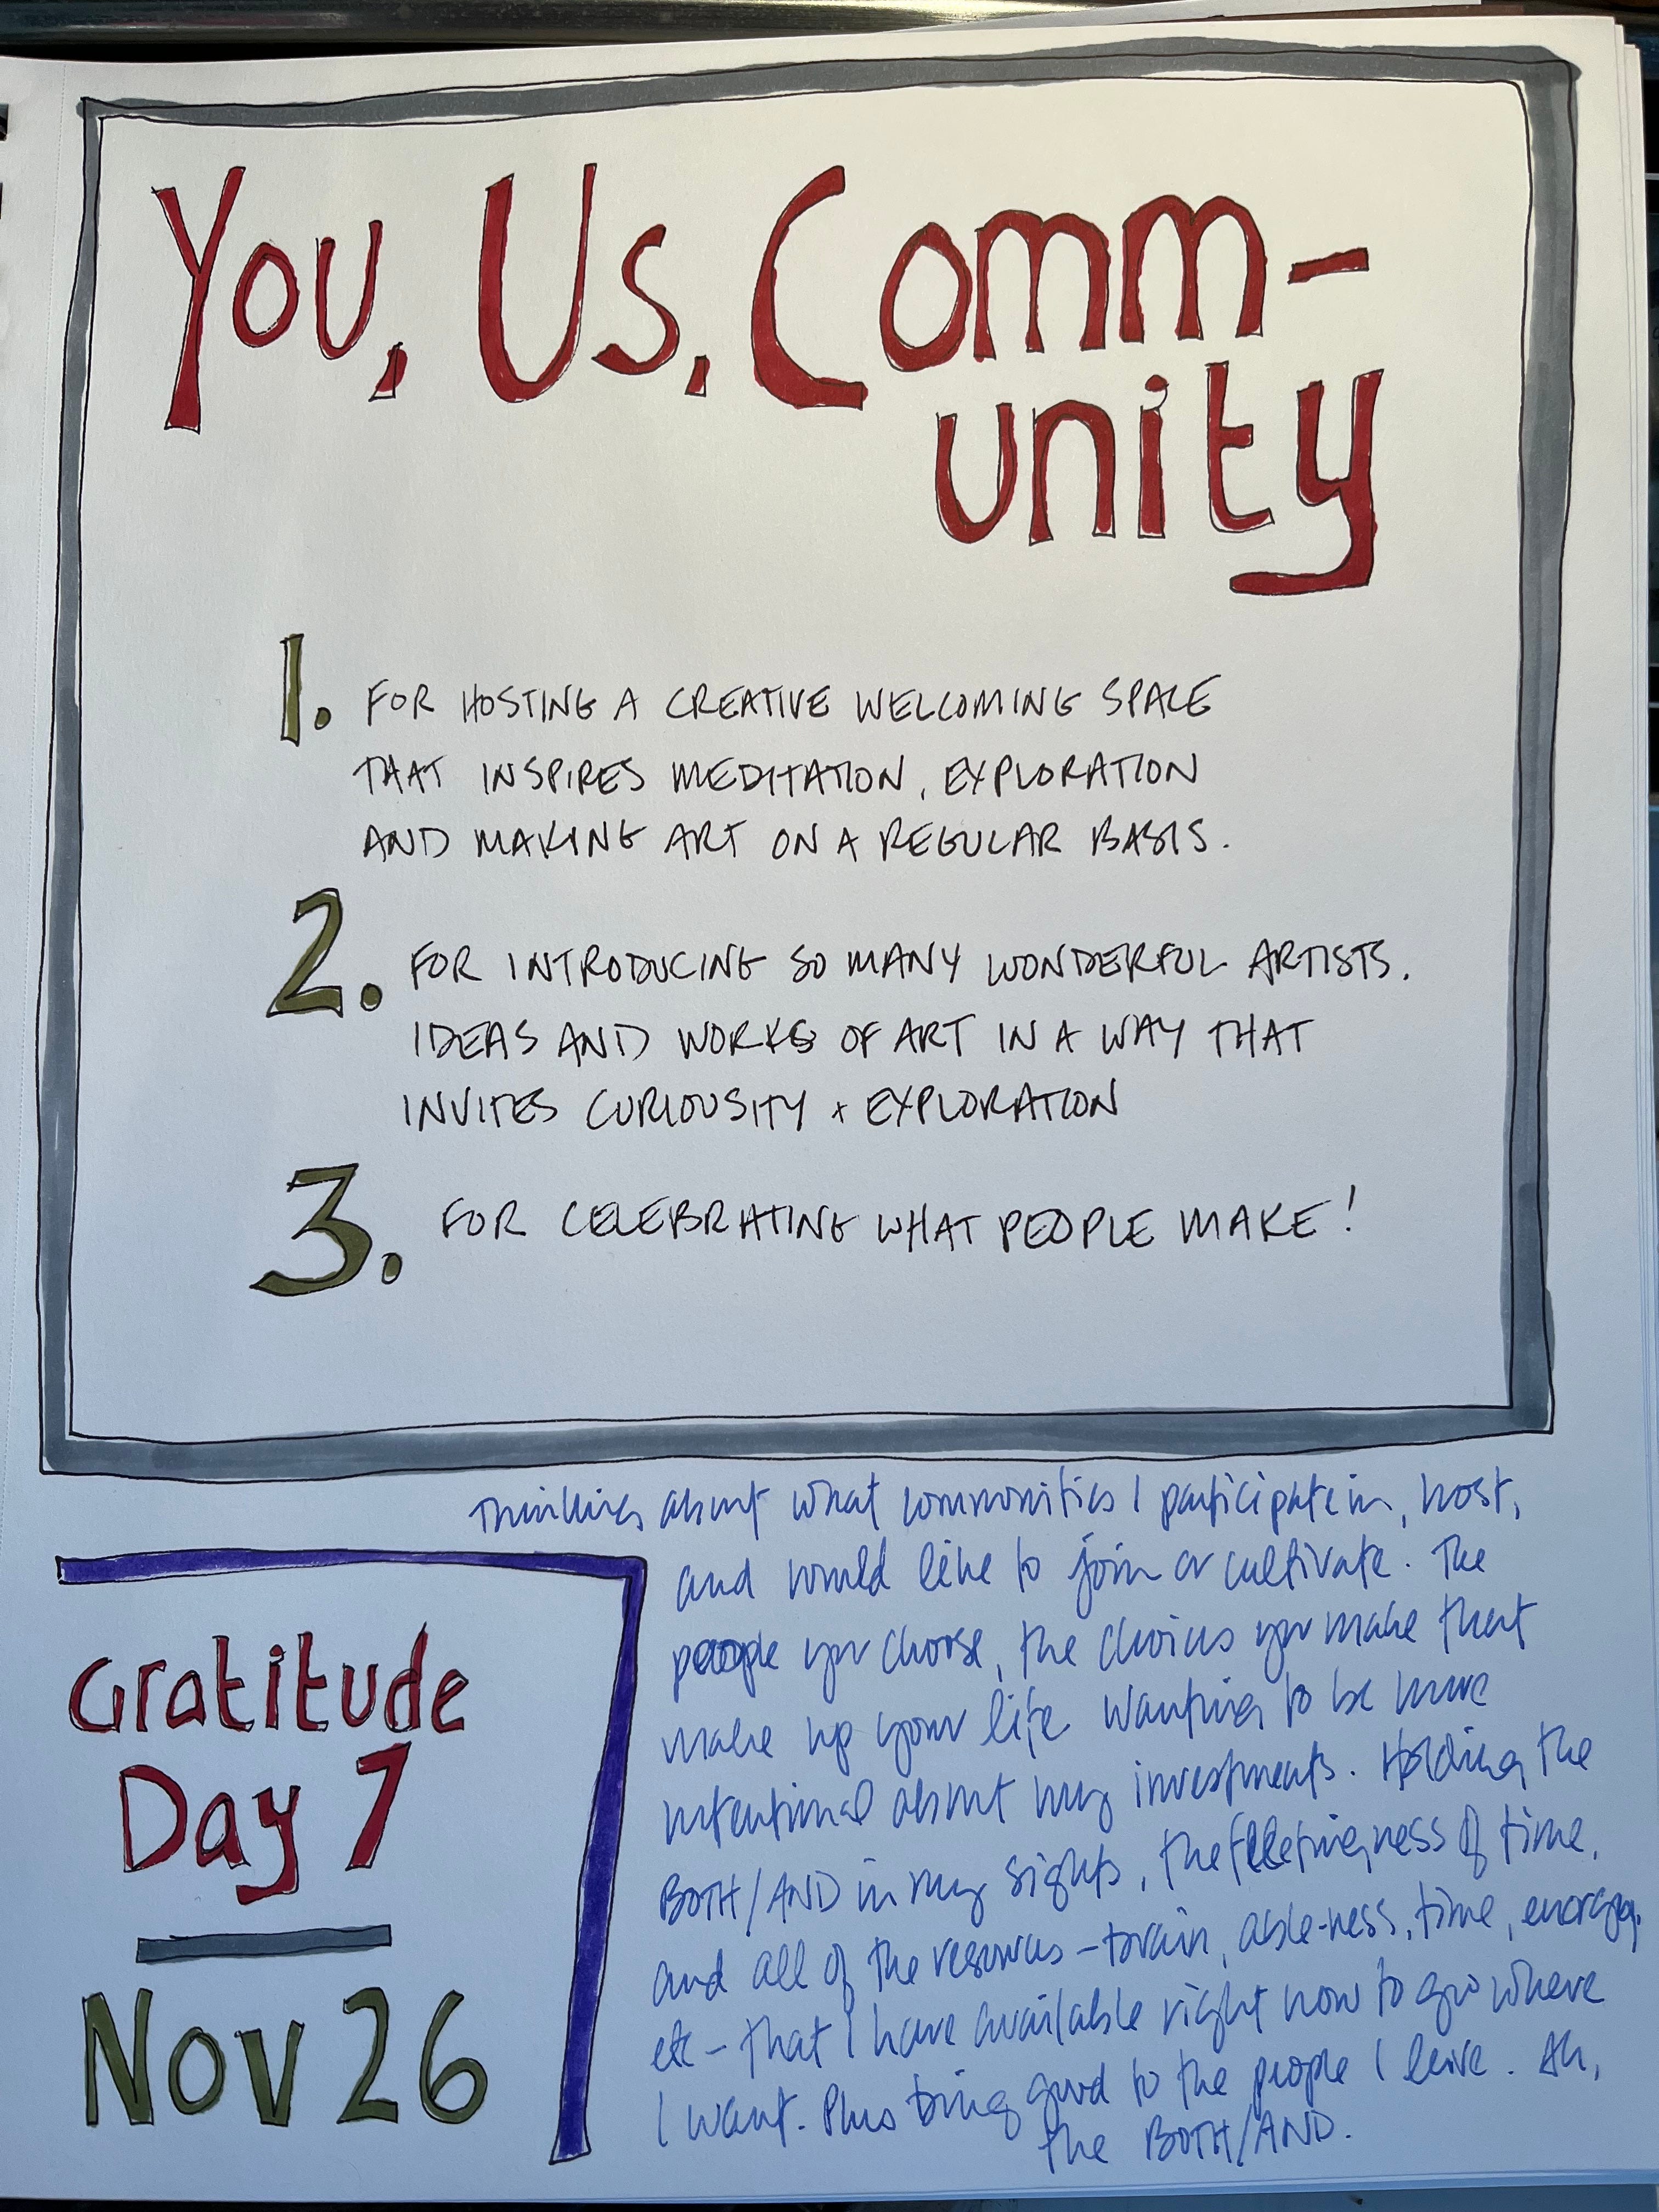 You, Us, Comm-
unity
1. FOR HOSTING A CREATIVE WELCOMING SPACE
THAT INSPIRES MEDITATION, EXPLORATION
AND MAKING ART ON A REGULAR BASIS.
2. FOR INTRODUCING SO MANY WONDERFUL ARTISTS,
IDEAS AND WORKS OF ART IN A WAY THAT
INVITES CURIOUSITY + EXPLORATION
3. FOR CELEBRATING WHAT PEOPLE MAKE!
Thinking about what communities I participate in, host,
and would like to join or cultivate. The
people you choose, the choices you make that
make up your life. Wanting to be more
intentional about my investments. Holding the
BOTH/AND in my sights, the fleetingness of time,
and all of the resources - brain, able-ness, time, energy,
etc - that I have available right now to go where
I want. Plus being good to the people I love. Ah,
the BOTH/AND.
Gratitude
Day 7
Nov 26